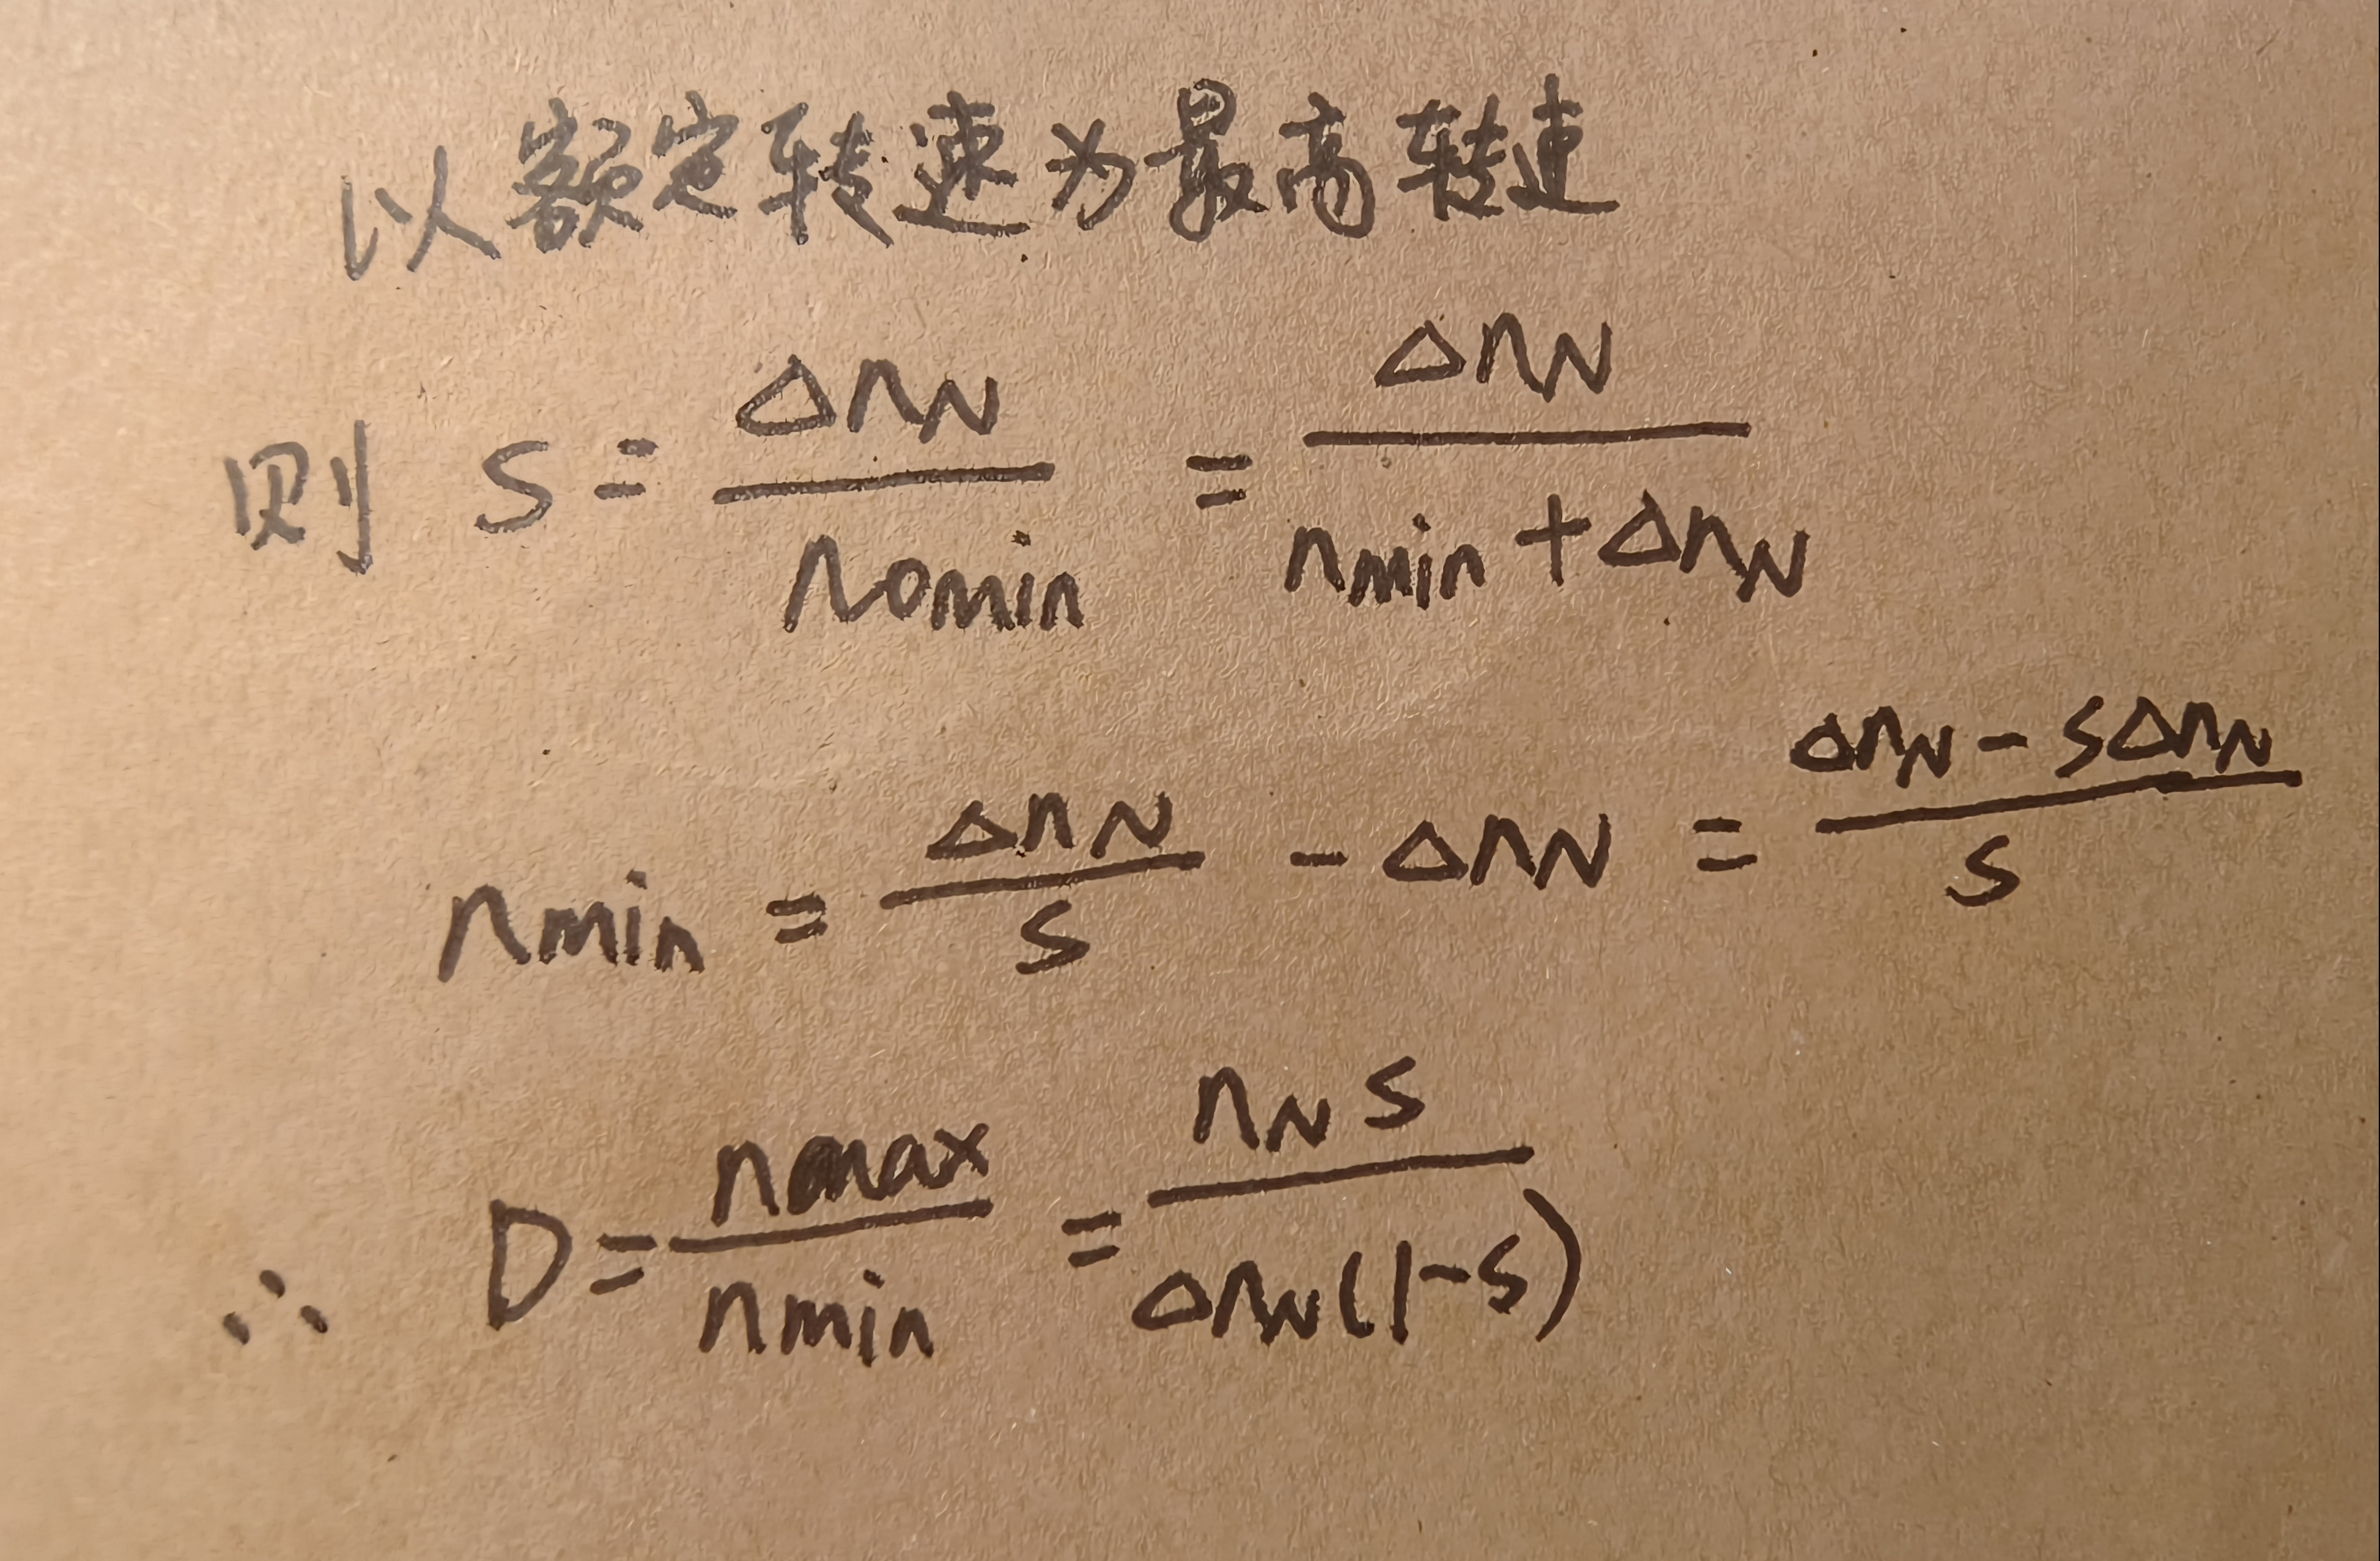 以额定转速为最高转速
则 S = ΔnN / n0min = ΔnN / (nmin + ΔnN)
nmin = ΔnN / S - ΔnN = (ΔnN - SΔnN) / S
∴ D = nmax / nmin = nN S / ΔnN(1-S)